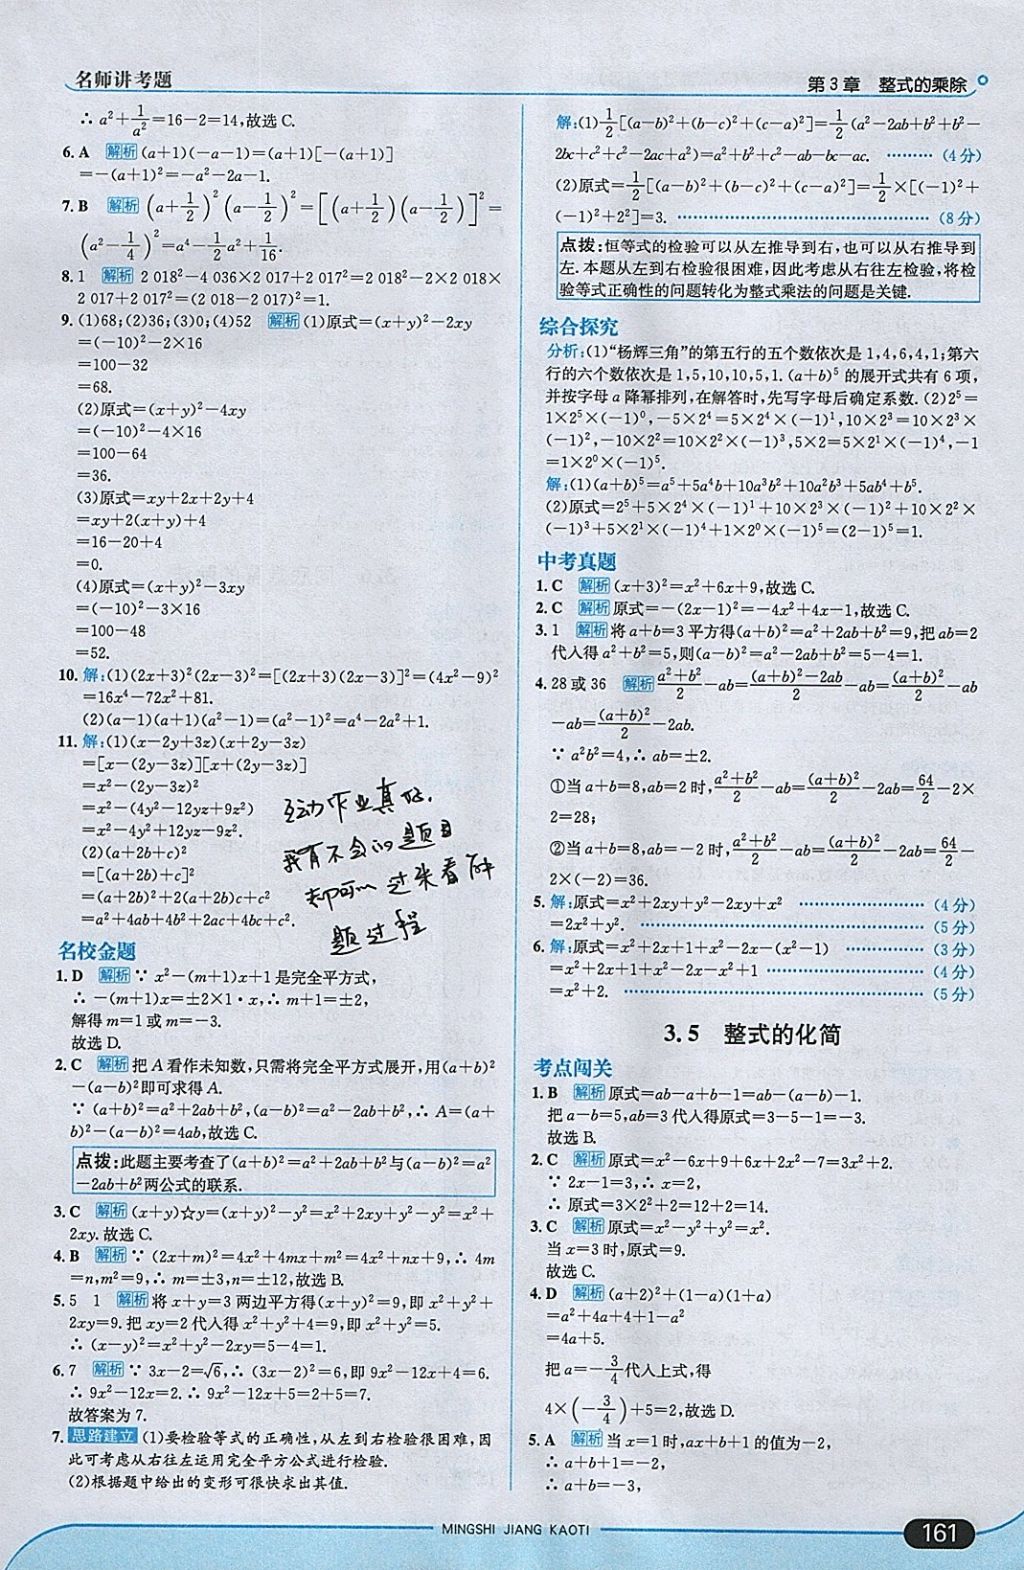 名师讲考题
第3章 整式的乘除
∴a²+1/a²=16-2=14,故选C.
6.A 解析 (a+1)(-a-1)=(a+1)[-(a+1)]
=-(a+1)²=-a²-2a-1.
7.B 解析 (a+1/2)²(a-1/2)²=[(a+1/2)(a-1/2)]²=
(a²-1/4)²=a⁴-1/2a²+1/16.
8.1 解析 2 018²-4 036×2 017+2 017²=2 018²-2×2 018×
2 017+2 017²=(2 018-2 017)²=1.
9.(1)68;(2)36;(3)0;(4)52 解析 (1)原式=(x+y)²-2xy
=(-10)²-2×16
=100-32
=68.
(2)原式=(x+y)²-4xy
=(-10)²-4×16
=100-64
=36.
(3)原式=xy+2x+2y+4
=xy+2(x+y)+4
=16-20+4
=0.
(4)原式=(x+y)²-3xy
=(-10)²-3×16
=100-48
=52.
10.解:(1)(2x+3)²(2x-3)²=[(2x+3)(2x-3)]²=(4x²-9)²
=16x⁴-72x²+81.
(2)(a-1)(a+1)(a²-1)=(a²-1)²=a⁴-2a²+1.
11.解:(1)(x-2y+3z)(x+2y-3z)
=[x-(2y-3z)][x+(2y-3z)]
=x²-(2y-3z)²
=x²-(4y²-12yz+9z²)
=x²-4y²+12yz-9z².
(2)(a+2b+c)²
=[(a+2b)+c]²
=(a+2b)²+2(a+2b)c+c²
=a²+4ab+4b²+2ac+4bc+c².
互动作业真好.
我有不会的题目
都可以过来看解
题过程
名校金题
1.D 解析 ∵x²-(m+1)x+1是完全平方式,
∴-(m+1)x=±2×1·x,∴m+1=±2,
解得m=1或m=-3.
故选D.
2.C 解析 把A看作未知数,只需将完全平方式展开,用(a+b)²
-(a-b)²即可求得A.
∵(a+b)²=a²+2ab+b²,(a-b)²=a²-2ab+b²,∴A=(a+
b)²-(a-b)²=4ab,故选C.
点拨:此题主要考查了(a+b)²=a²+2ab+b²与(a-b)²=a²
-2ab+b²两公式的联系.
3.C 解析 (x+y)☆y=(x+y)²-y²=x²+2xy+y²-y²=x²+
2xy.故选C.
4.B 解析 ∵(2x+m)²=4x²+4mx+m²=4x²+nx+9,∴4m
=n,m²=9,∴m=±3,n=±12,故选B.
5.5 1 解析 将x+y=3两边平方得(x+y)²=9,即x²+y²+
2xy=9.把xy=2代入得x²+y²+4=9,即x²+y²=5.
∴(x-y)²=x²+y²-2xy=5-4=1.
6.7 解析 ∵3x-2=√6,∴(3x-2)²=6,即9x²-12x+4=6.
∴9x²-12x=2.∴9x²-12x+5=2+5=7.
故答案为7.
7.思路建立 (1)要检验等式的正确性,从左到右检验很困难,因
此可考虑从右往左运用完全平方公式进行检验.
(2)根据题中给出的变形可很快求出其值.
解:(1)1/2[(a-b)²+(b-c)²+(c-a)²]=1/2(a²-2ab+b²+b²-
2bc+c²+c²-2ac+a²)=a²+b²+c²-ab-bc-ac. ………(4分)
(2)原式=1/2[(a-b)²+(b-c)²+(c-a)²]=1/2×[(-1)²+
(-1)²+2²]=3. ………(8分)
点拨:恒等式的检验可以从左推导到右,也可以从右推导到
左.本题从左到右检验很困难,因此考虑从右往左检验,将检
验等式正确性的问题转化为整式乘法的问题是关键.
综合探究
分析:(1)“杨辉三角”的第五行的五个数依次是1,4,6,4,1;第六
行的六个数依次是1,5,10,10,5,1.(a+b)⁵的展开式共有6项,
并按字母a降幂排列,在解答时,先写字母后确定系数.(2)2⁵=
1×2⁵×(-1)⁰,-5×2⁴=5×2⁴×(-1)¹,10×2³=10×2³×
(-1)²,-10×2²=10×2²×(-1)³,5×2=5×2¹×(-1)⁴,-1
=1×2⁰×(-1)⁵.
解:(1)(a+b)⁵=a⁵+5a⁴b+10a³b²+10a²b³+5ab⁴+b⁵.
(2)原式=2⁵+5×2⁴×(-1)¹+10×2³×(-1)²+10×2²×
(-1)³+5×2¹×(-1)⁴+1×2⁰×(-1)⁵=(2-1)⁵=1.
中考真题
1.C 解析 (x+3)²=x²+6x+9,故选C.
2.C 解析 原式=-(2x-1)²=-4x²+4x-1,故选C.
3.1 解析 将a+b=3平方得(a+b)²=a²+2ab+b²=9,把ab=2
代入得a²+b²=5,则(a-b)²=a²-2ab+b²=5-4=1.
4.28或36 解析 (a²+b²)/2-ab=((a+b)²-2ab)/2-ab=(a+b)²/2-ab
-ab=(a+b)²/2-2ab.
∵a²b²=4,∴ab=±2.
①当a+b=8,ab=2时,(a²+b²)/2-ab=(a+b)²/2-2ab=64/2-2×
2=28;
②当a+b=8,ab=-2时,(a²+b²)/2-ab=(a+b)²/2-2ab=64/2-
2×(-2)=36.
5.解:原式=x²+2xy+y²-2xy+x² ………(4分)
=2x²+y². ………(5分)
6.解:原式=x²+2x+1+x²-2x-(x²-1) ………(3分)
=x²+2x+1+x²-2x-x²+1 ………(4分)
=x²+2. ………(5分)
3.5 整式的化简
考点闯关
1.B 解析 原式=ab-a+b-1=ab-(a-b)-1.
把a-b=5,ab=3代入得原式=3-5-1=-3.
故选B.
2.C 解析 原式=x²-6x+9+6x+2x²-7=3x²+2.
∵2x-1=3,∴x=2,
∴原式=3×2²+2=12+2=14.
3.C 解析 原式=x²-y²+y²=x².
当x=3时,原式=9.
故选C.
4.D 解析 (a+2)²+(1-a)(1+a)
=a²+4a+4+1-a²
=4a+5.
把a=-3/4代入上式,得
4×(-3/4)+5=2,故选D.
5.A 解析 当x=1时,ax+b+1的值为-2,
∴a+b+1=-2,
∴a+b=-3,
MINGSHI JIANG KAOTI
161